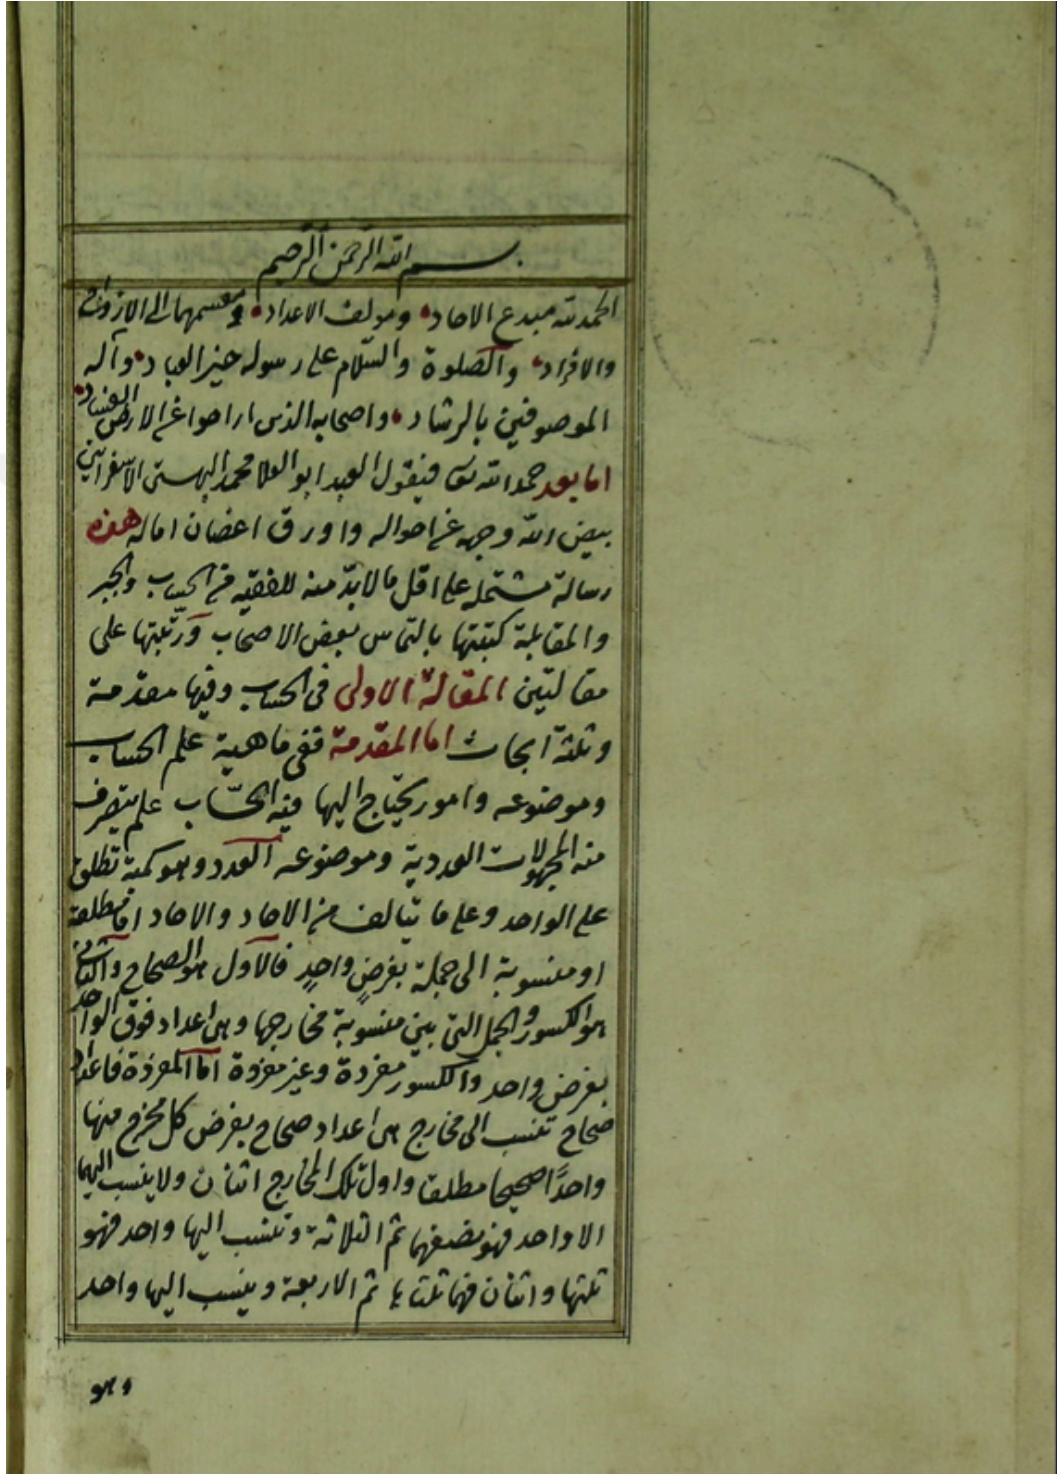 بسم الله الرحمن الرحيم
الحمد لله مبدع الاحاد ومولف الاعداد ومقسمهما الى الازواج
والافراد والصلوة والسلام على رسوله خير العباد وآله
الموصوفين بالرشاد واصحابه الذين اراحوا عن الارض الفساد
اما بعد حمد الله تعالى فيقول العبد ابو العلا محمد البهشتي الاسفرايني
بيض الله وجهه احواله واورق اغصان اماله هذه
رسالة مشتملة على اقل ما لابد منه للفقيه من الحساب والجبر
والمقابلة كتبتها بالتماس بعض الاصحاب ورتبتها على
مقالتين المقالة الاولى في الحساب وفيها مقدمة
وثلثة ابحاث اما المقدمة ففي ماهية علم الحساب
وموضوعه وامور يحتاج اليها فيه الحساب علم يتعرف
منه المجهولات العددية وموضوعه العدد وهو كمية تطلق
على الواحد وعلى ما يتالف من الاحاد والاحاد اما مطلقة
او منسوبة الى جملة بفرض واحدٍ فالاول هو الصحاح والثاني
هو الكسور والجمل التي بين منسوبة مخارجها وهي اعداد فوق الواحد
بفرض واحد والكسور مفردة وغير مفردة اما المفردة فاعداد
صحاح تنسب الى مخارج هي اعداد صحاح بفرض كل مخرج منها
واحدًا صحيحا مطلقا واول تلك المخارج اثنان ولا ينسب اليهما
الا واحد فهو نصفهما ثم الثلاثة وتنسب اليها واحد فهو
ثلثها واثنان فهما ثلثاها ثم الاربعة وينسب اليها واحد
وهو